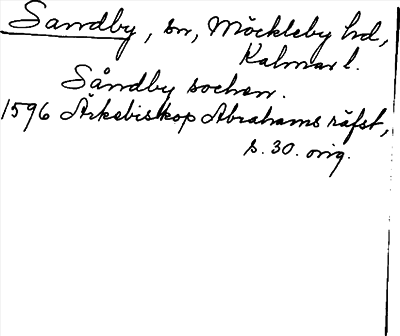 Sandby, sn, Möckleby hd,
Kalmar l.
Såndby sochen.
1596 Ärkebiskop Abrahams räfst,
s. 30. orig.